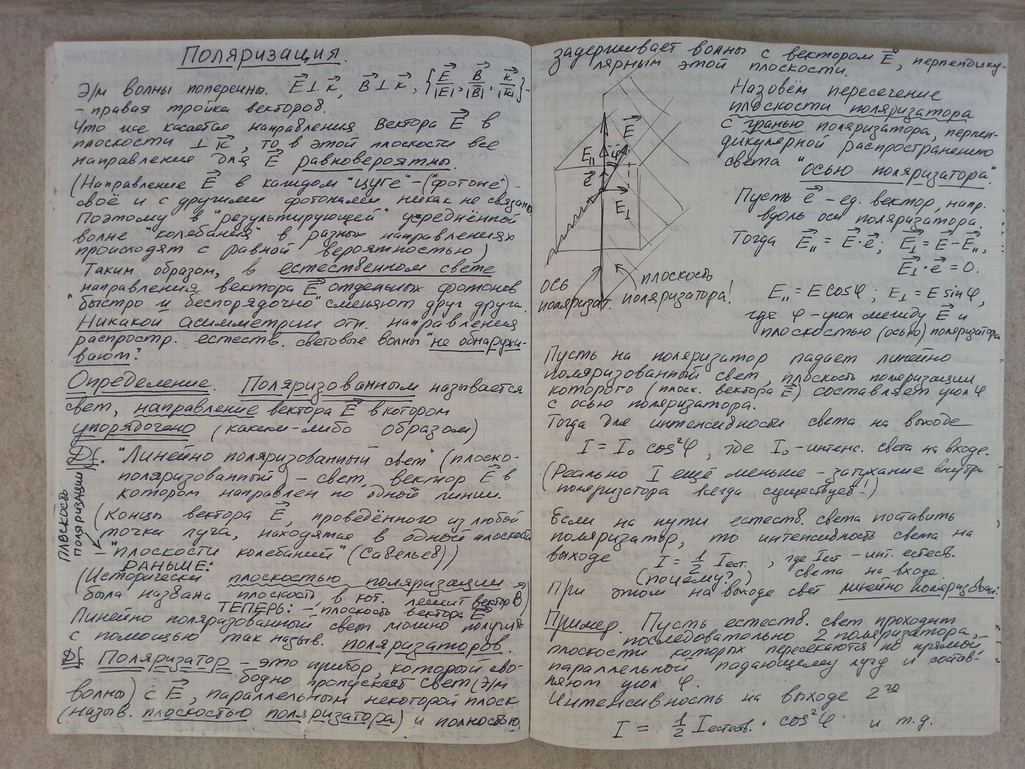 Поляризация.
Э/м волны поперечны. E⃗ ⊥ k⃗, B⃗ ⊥ k⃗, {E⃗/|E⃗|, B⃗/|B⃗|, k⃗/|k⃗|} -
- правая тройка векторов.
Что же касается направления вектора E⃗ в
плоскости ⊥ k⃗, то в этой плоскости все
направление для E⃗ равновероятны.
(Направление E⃗ в каждом "цуге" - ("фотоне") -
своё и с другими фотонами никак не связано
Поэтому в "результирующей" усреднённой
волне "колебания" в разных направлениях
происходят с равной вероятностью)
Таким образом, в естественном свете
направления вектора E⃗ отдельных фотонов
"быстро и беспорядочно" сменяют друг друга.
Никакой асимметрии отн. направления
распростр. естеств. световые волны не обнаружи-
вают!
Определение. Поляризованным называется
свет, направление вектора E⃗ в котором
упорядочено (каким-либо образом)
Df. "Линейно поляризованный свет" (плоско-
поляризованный) - свет, вектор E⃗ в
котором направлен по одной линии.
плоскость поляризации
(концы вектора E⃗, проведённого из любой
точки луча, находятся в одной плоскости
- "плоскости колебаний" (Савельев))
РАНЬШЕ:
(Исторически плоскостью поляризации
была названа плоскость в кот. лежит вектор B⃗)
ТЕПЕРЬ: - плоскость вектора E⃗
Линейно поляризованный свет можно получить
с помощью так назыв. поляризаторов.
Df Поляризатор - это прибор, который сво-
бодно пропускает свет (э/м
волны) с E⃗, параллельным некоторой плоск
(назыв. плоскостью поляризатора) и полностью
задерживает волны с вектором E⃗, перпендику-
лярным этой плоскости.
Назовём пересечение
плоскости поляризатора
с гранью поляризатора, перпен-
дикулярной распространению
света "осью поляризатора".
E⃗
E⃗∥
φ
e⃗
E⃗⊥
ось
поляризат.
плоскость
поляризатора!
Пусть e⃗ - ед. вектор, напр.
вдоль оси поляризатора.
Тогда E⃗∥ = E⃗·e⃗; E⃗⊥ = E⃗ - E⃗∥,
E⃗⊥·e⃗ = 0.
E∥ = E cosφ; E⊥ = E sinφ,
где φ - угол между E⃗ и
плоскостью (осью) поляризатора
Пусть на поляризатор падает линейно
поляризованный свет, плоскость поляризации
которого (плоск. вектора E⃗) составляет угол φ
с осью поляризатора.
Тогда для интенсивности света на выходе
I = I₀ cos²φ, где I₀ - интенс. света на входе.
(Реально I ещё меньше - затухание внутри
поляризатора всегда существует!)
Если на пути естеств. света поставить
поляризатор, то интенсивность света на
выходе I = 1/2 Iест., где Iест - инт. естеств.
(почему?) света на входе.
При этом на выходе свет линейно поляризован.
Пример. Пусть естеств. свет проходит
последовательно 2 поляризатора,
плоскости которых пересекаются по прямой,
параллельной падающему лучу и состав-
ляют угол φ.
Интенсивность на выходе 2го
I = 1/2 Iестеств. · cos²φ и т.д.